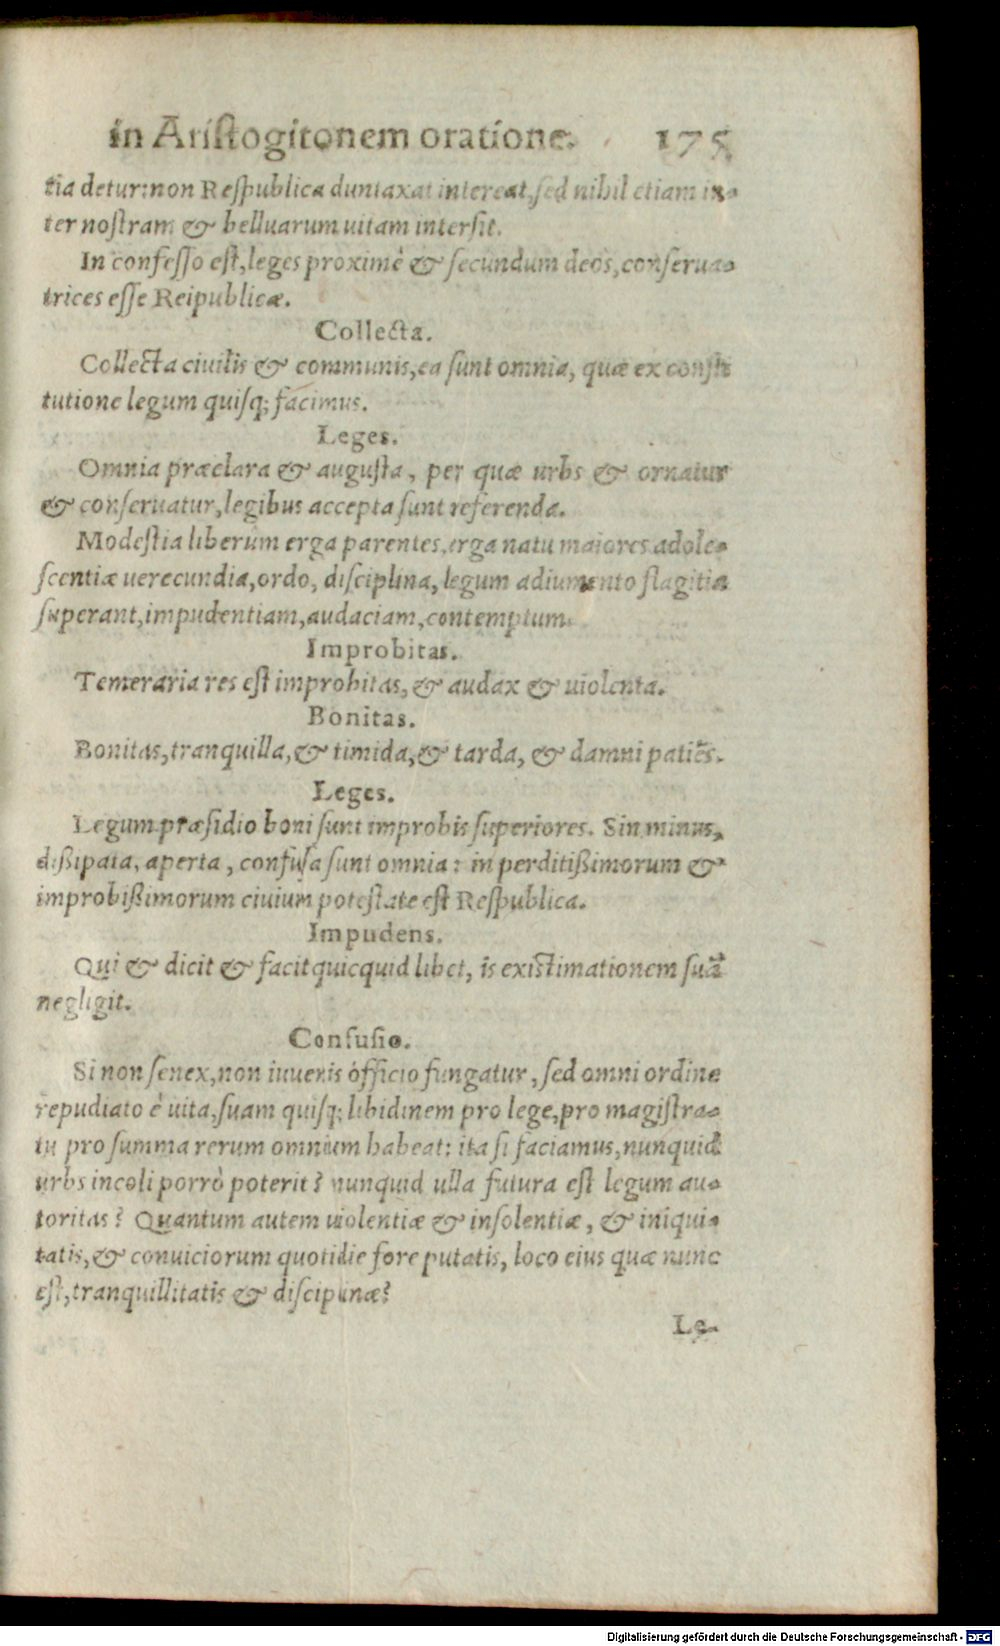 in Aristogitonem oratione. 175
tia detur: non Respublica duntaxat intereat, sed nihil etiam in-
ter nostram & belluarum uitam intersit.
In confesso est, leges proximè & secundum deos, conserua-
trices esse Reipublicæ.
Collecta.
Collecta ciuilis & communis, ea sunt omnia, quæ ex consti
tutione legum quisq; facimus.
Leges.
Omnia præclara & augusta, per quæ urbs & ornatur
& conseruatur, legibus accepta sunt referenda.
Modestia liberûm erga parentes, erga natu maiores adole-
scentiæ uerecundia, ordo, disciplina, legum adiumento flagitia
superant, impudentiam, audaciam, contemptum.
Improbitas.
Temeraria res est improbitas, & audax & uiolenta.
Bonitas.
Bonitas, tranquilla, & timida, & tarda, & damni patiẽs.
Leges.
Legum præsidio boni sunt improbis superiores. Sin minus,
dißipata, aperta, confusa sunt omnia: in perditißimorum &
improbißimorum ciuium potestate est Respublica.
Impudens.
Qui & dicit & facit quicquid libet, is existimationem suã
negligit.
Confusio.
Si non senex, non iuuenis officio fungatur, sed omni ordine
repudiato è uita, suam quisq; libidinem pro lege, pro magistra-
tu pro summa rerum omnium habeat: ita si faciamus, nunquid
urbs incoli porrò poterit? nunquid ulla futura est legum au-
toritas? Quantum autem uiolentiæ & insolentiæ, & iniqui-
tatis, & conuiciorum quotidie fore putatis, loco eius quæ nunc
est, tranquillitatis & disciplinæ?
Le-
Digitalisierung gefördert durch die Deutsche Forschungsgemeinschaft - DFG